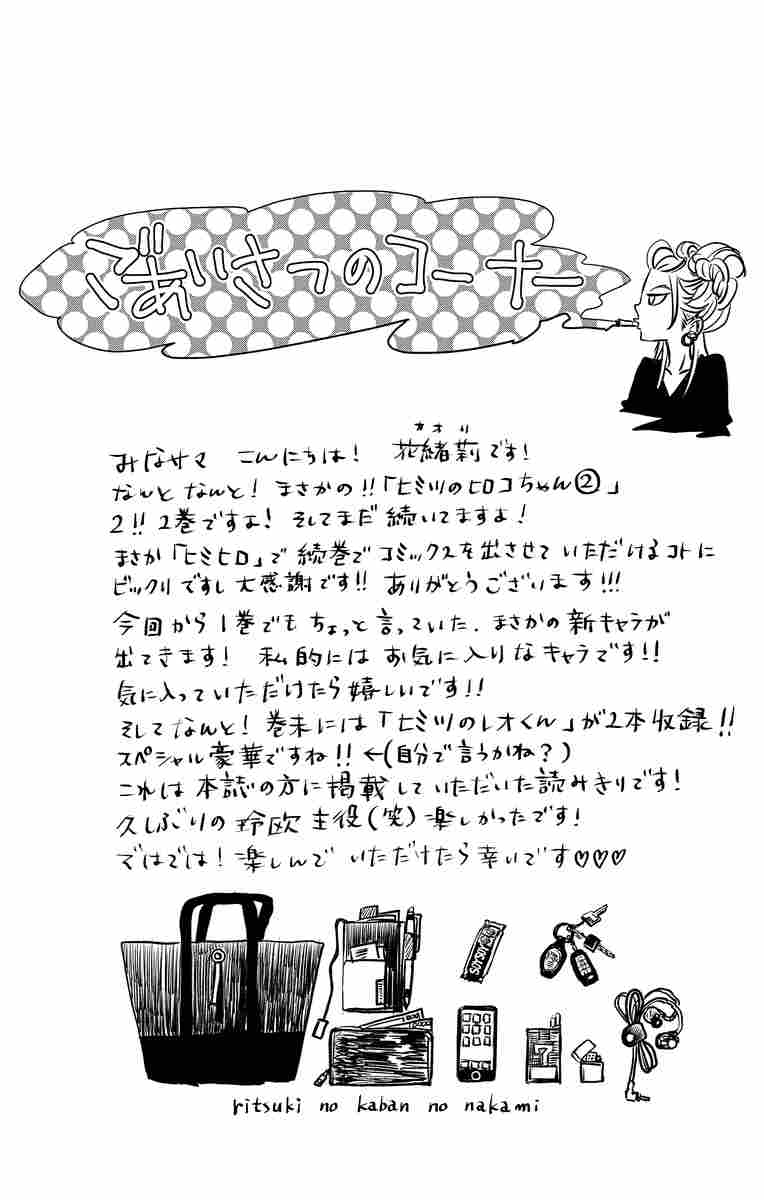 ごあいさつのコーナー
みなサマ こんにちは! 花緒莉です!
カオリ
なんと なんと! まさかの!!「ヒミツのヒロコちゃん②」
2!! 2巻ですよ! そしてまだ続いてますよ!
まさか「ヒミヒロ」で続巻でコミックスを出させていただけるコトに
ビックリですし大感謝です!! ありがとうございます!!!
今回から1巻でもちょっと言っていた、まさかの新キャラが
出てきます! 私的にはお気に入りなキャラです!!
気に入っていただけたら嬉しいです!!
そしてなんと! 巻末には「ヒミツのレオくん」が2本収録!!
スペシャル豪華ですね!! ←(自分で言うかね?)
これは本誌の方に掲載していただいた読みきりです!
久しぶりの玲欧主役(笑)楽しかったです!
ではでは! 楽しんでいただけたら幸いです♡♡♡
SOYJOY
7
ritsuki no kaban no nakami